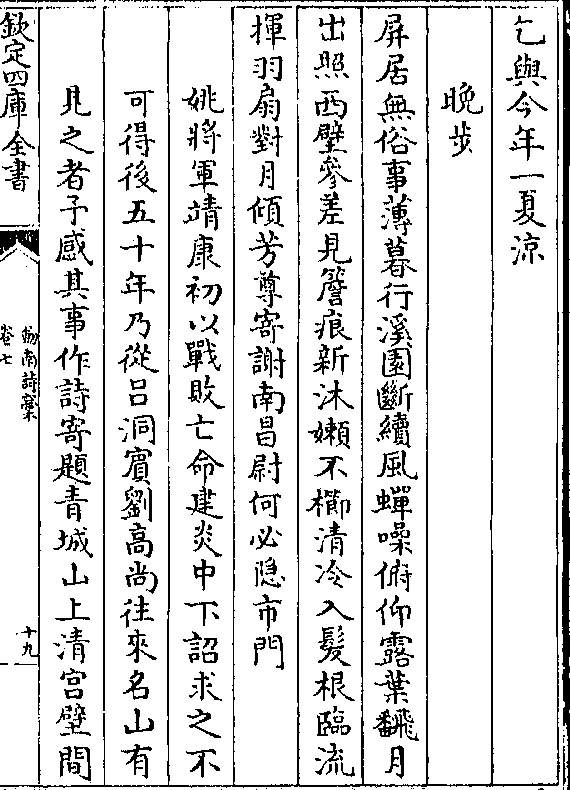 乞與今年一夏涼
晚步
屏居無俗事薄暮行溪園斷續風蟬噪俯仰露葉飜月
出照西壁參差見簷痕新沐嬾不櫛清冷入髮根臨流
揮羽扇對月傾芳尊寄謝南昌尉何必隐市門
姚將軍靖康初以戰敗亡命建炎中下詔求之不
可得後五十年乃從呂洞賓劉高尚往來名山有
見之者予感其事作詩寄題青城山上清宫壁間
欽定四庫全書
劎南詩稾
卷七
十九